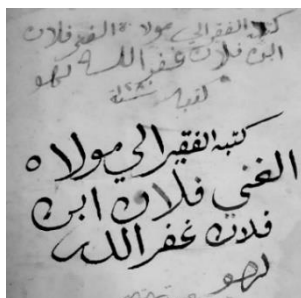 كتبه الفقير الي مولاه الغني فلان
ابن فلان غفر الله لهو
كتبه الفقير الي مولاه
الغني فلان ابن
فلان غفر الله
لهو